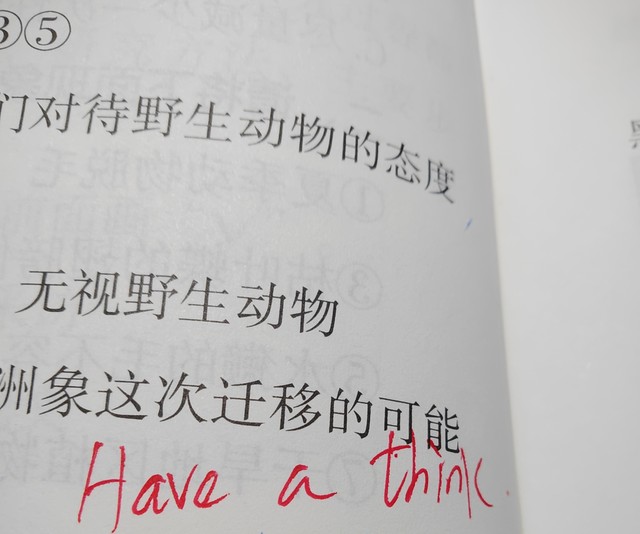 ③⑤
们对待野生动物的态度
无视野生动物
洲象这次迁移的可能
Have a think.